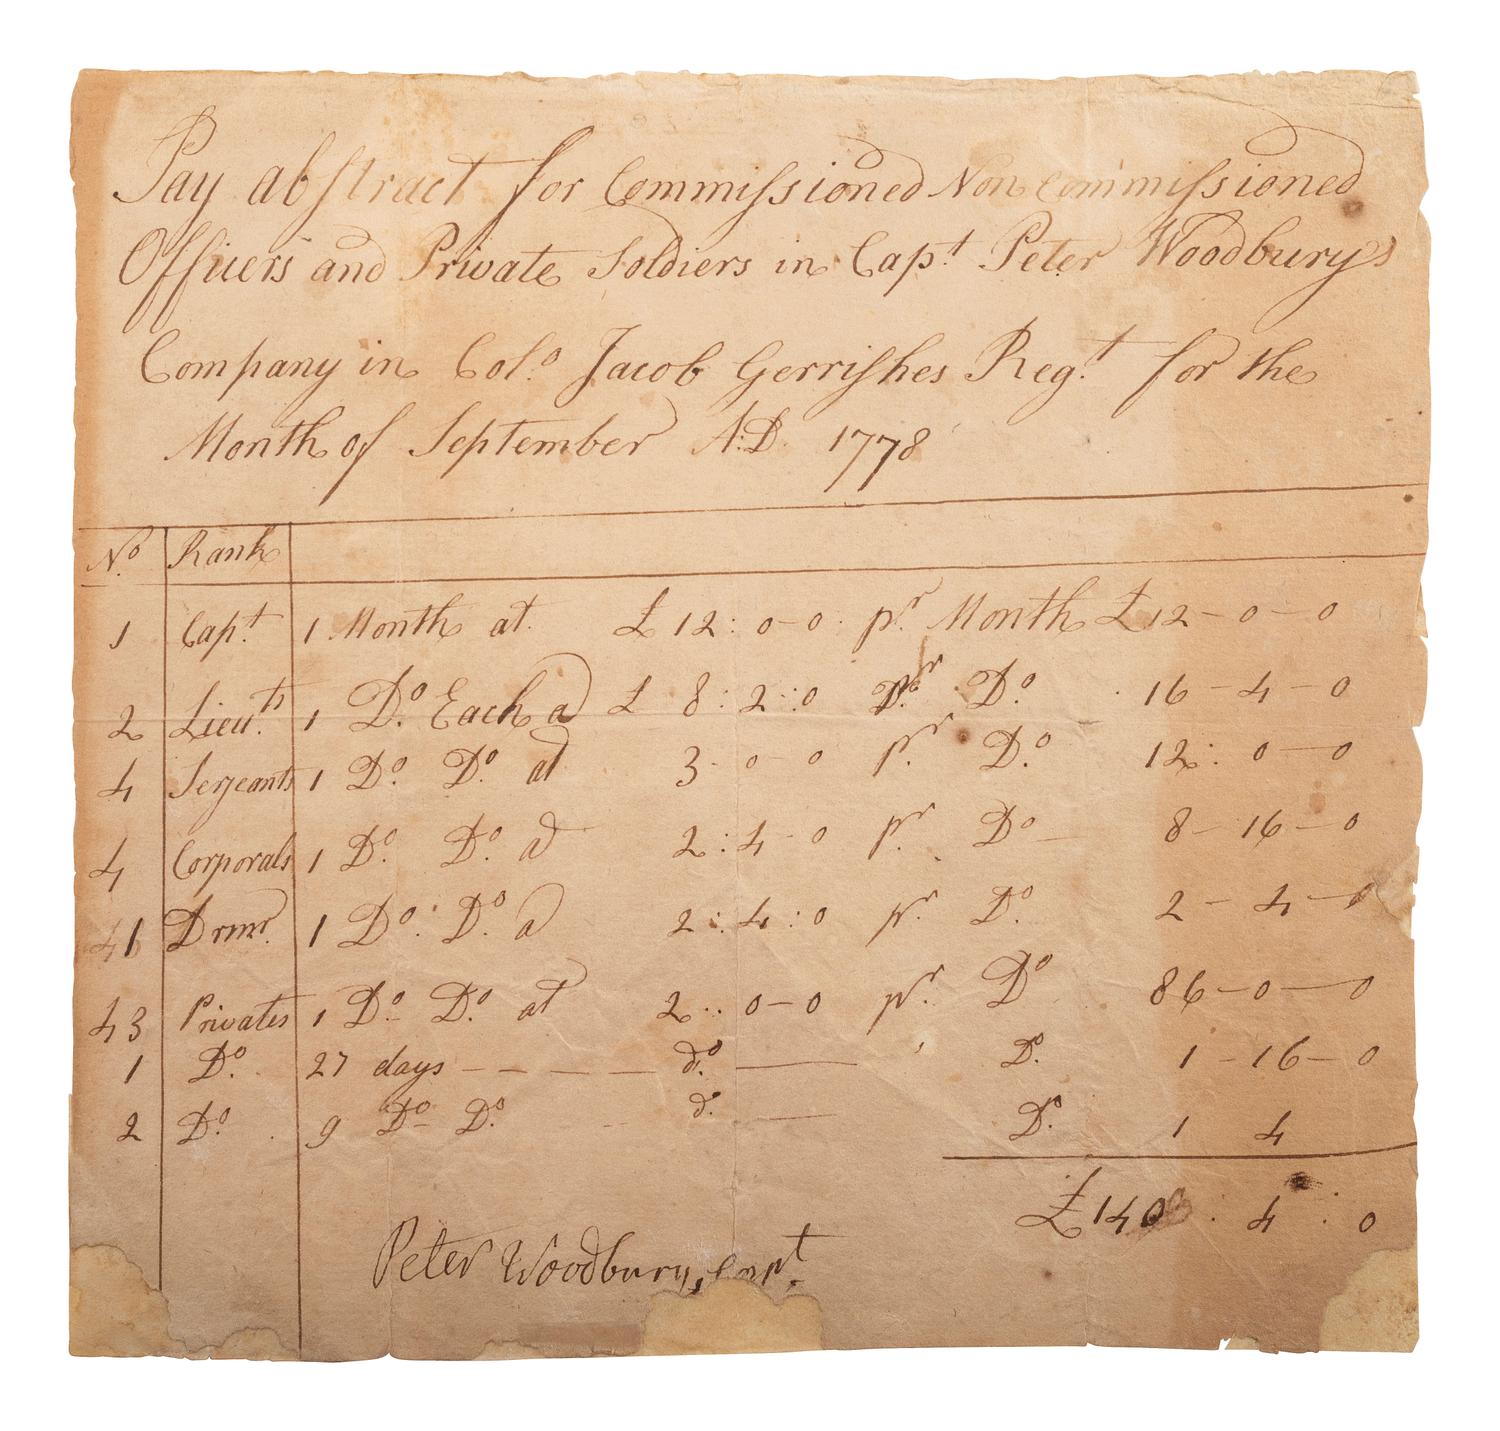 Pay abstract for Commissioned Non Commissioned
Officers and Private Soldiers in Capt. Peter Woodburys
Company in Colo. Jacob Gerrishes Regt. for the
Month of September A:D. 1778
No. Rank
1 Capt. 1 Month at £ 12: 0-0. pr. Month £12-0-0
2 Lieuts. 1 Do. Each a £ 8:2:0 pr. Do. 16-4-0
4 Serjeants 1 Do. Do. at 3-0-0 pr. Do. 12: 0-0
4 Corporals 1 Do. Do. a 2:4-0 pr. Do 8-16-0
1 Drmr. 1 Do. Do. a 2:4:0 pr. Do. 2-4-0
43 Privates 1 Do- Do. at 2..0-0 pr. Do 86-0-0
1 Do. 27 days ---- do. — Do. 1-16-0
2 Do. 9 Do- Do. do. — Do. 1 4
£140 . 4 . 0
Peter Woodbury, Capt.